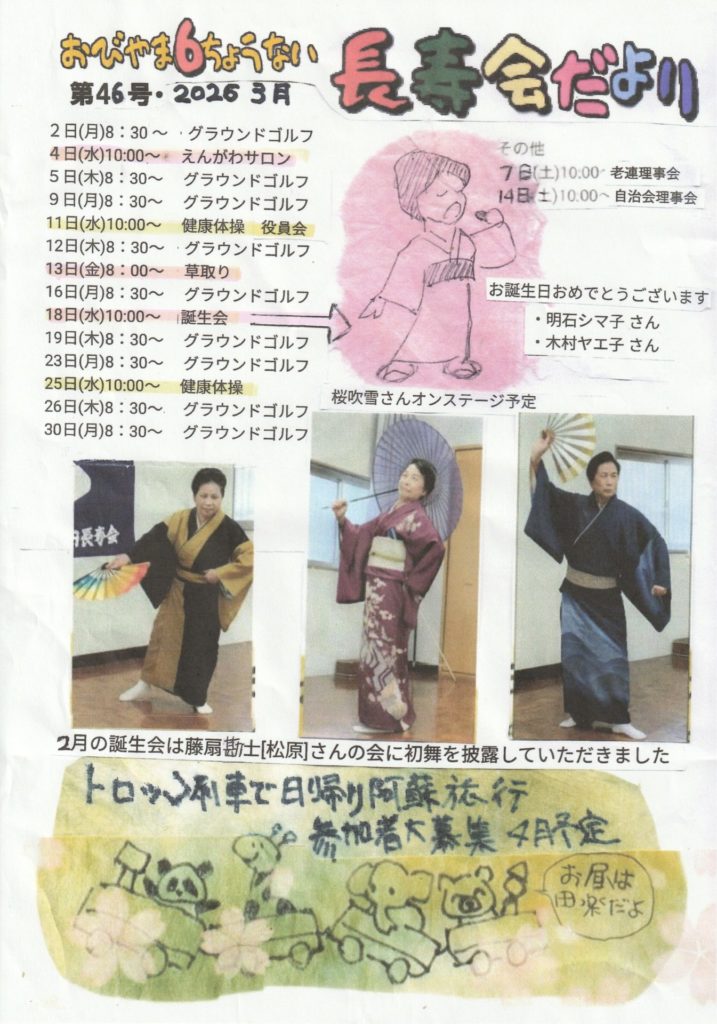 おびやま6ちょうない
長寿会だより
第46号・2026 3月
2日(月)8：30～ グラウンドゴルフ
4日(水)10:00～ えんがわサロン
5日(木)8：30～ グラウンドゴルフ
9日(月)8：30～ グラウンドゴルフ
11日(水)10:00～ 健康体操 役員会
12日(木)8：30～ グラウンドゴルフ
13日(金)8：00～ 草取り
16日(月)8：30～ グラウンドゴルフ
18日(水)10:00～ 誕生会
19日(木)8：30～ グラウンドゴルフ
23日(月)8：30～ グラウンドゴルフ
25日(水)10:00～ 健康体操
26日(木)8：30～ グラウンドゴルフ
30日(月)8：30～ グラウンドゴルフ
その他
7日(土)10:00~ 老連理事会
14日(土)10:00~ 自治会理事会
お誕生日おめでとうございます
・明石シマ子 さん
・木村ヤエ子 さん
桜吹雪さんオンステージ予定
長寿会
2月の誕生会は藤扇勘士[松原]さんの会に初舞を披露していただきました
トロッコ列車で日帰り阿蘇旅行
参加者大募集 4月予定
お昼は
田楽だよ